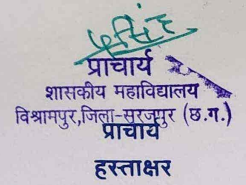 प्राचार्य
शासकीय महाविद्यालय
विश्रामपुर,जिला-सूरजपुर (छ.ग.)
प्राचार्य
हस्ताक्षर